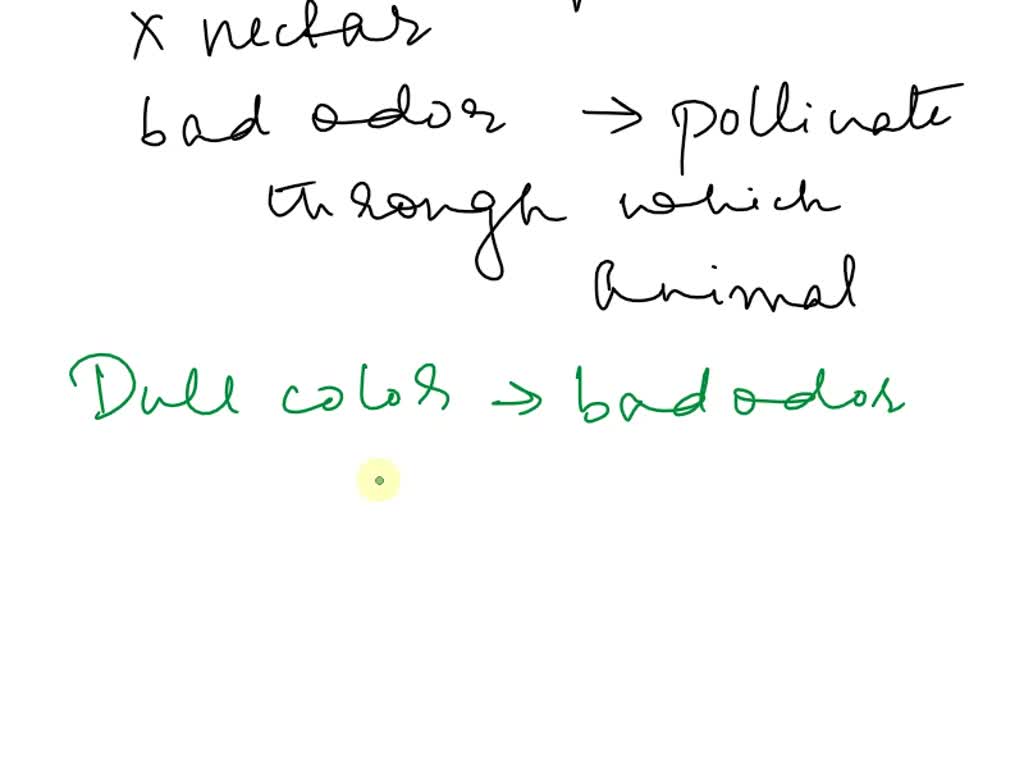 x nectar
bad odor → pollinate
through which
animal
Dull color → bad odor